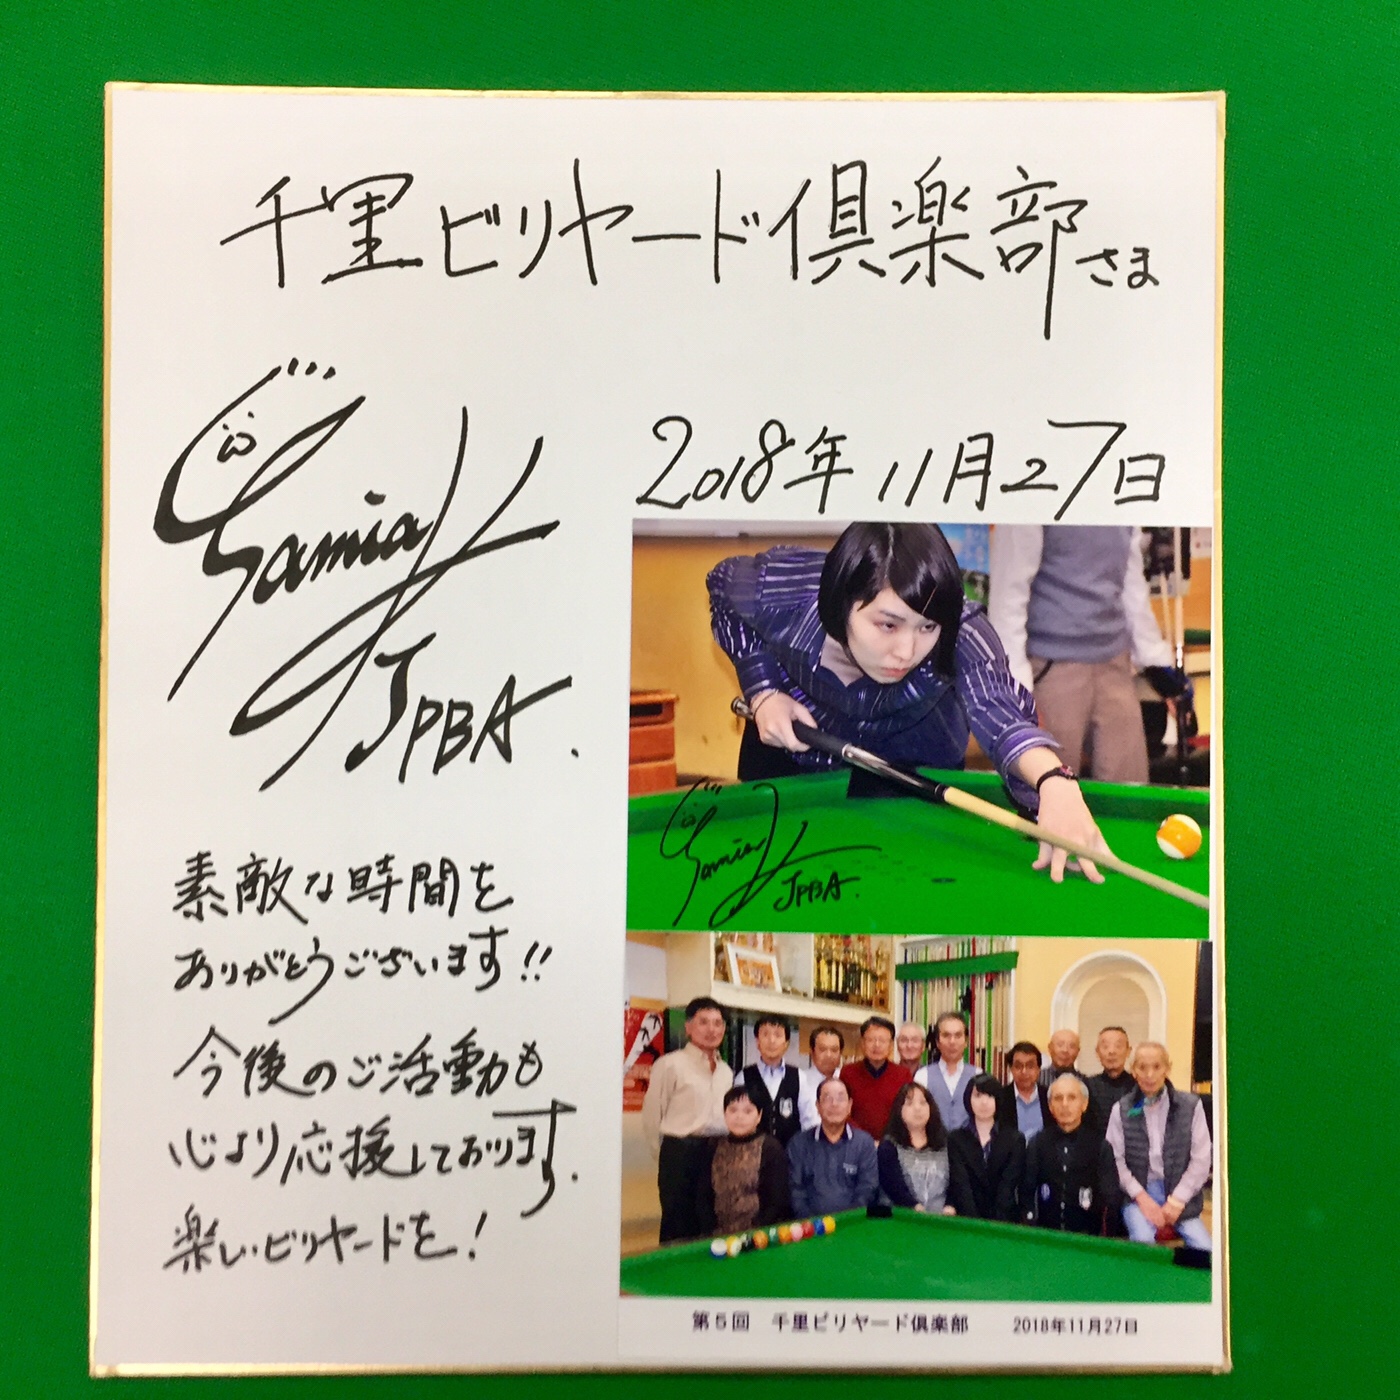 千里ビリヤード倶楽部さま
2018年11月27日
JPBA.
素敵な時間を
ありがとうございます!!
今後のご活動も
心より応援しております.
楽しいビリヤードを!
JPBA.
第5回 千里ビリヤード倶楽部 2018年11月27日